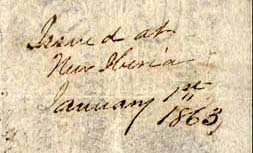 Issued at
New Iberia
January 1st
1863